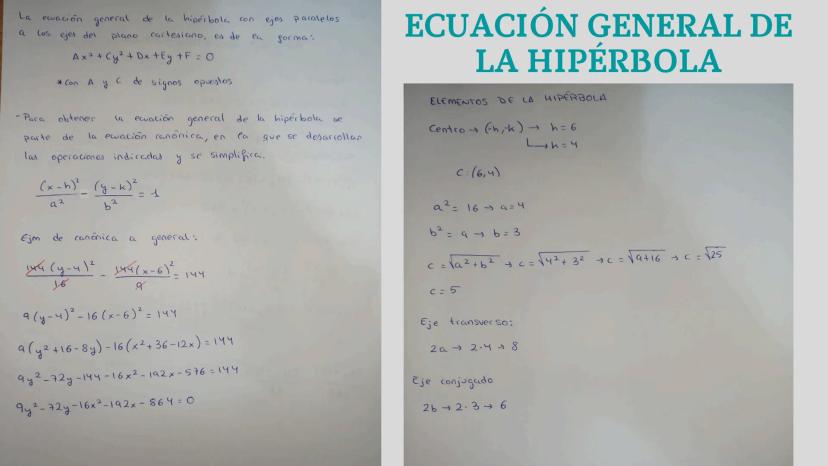 La ecuación general de la hipérbola con ejes paralelos
a los ejes del plano cartesiano, es de la forma:
Ax² + Cy² + Dx + Ey + F = 0
*Con A y C de signos opuestos
- Para obtener la ecuación general de la hipérbola se
parte de la ecuación canónica, en la que se desarrollan
las operaciones indicadas y se simplifica.
(x-h)²/a² - (y-k)²/b² = 1
Ejm de canónica a general:
144(y-4)²/16 - 144(x-6)²/9 = 144
9(y-4)² - 16(x-6)² = 144
9(y²+16-8y) - 16(x²+36-12x) = 144
9y² - 72y - 144 - 16x² - 192x - 576 = 144
9y² - 72y - 16x² - 192x - 864 = 0
ECUACIÓN GENERAL DE
LA HIPÉRBOLA
ELEMENTOS DE LA HIPÉRBOLA
Centro → (-h,-k) → h = 6
↳ k = 4
C: (6,4)
a² = 16 → a = 4
b² = 9 → b = 3
c = √a² + b² → c = √4² + 3² → c = √9+16 → c = √25
c = 5
Eje transverso:
2a → 2·4 → 8
Eje conjugado
2b → 2·3 → 6